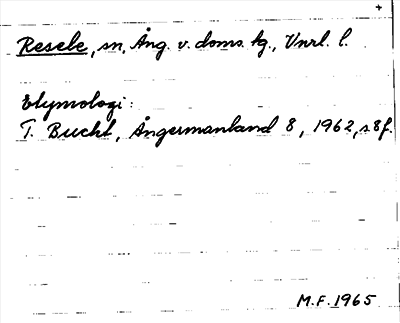 +
Resele, sn, Ång. v. doms. tg., Vnrl. l.
Etymologi:
T. Bucht, Ångermanland 8, 1962, s 8 f.
M.F. 1965